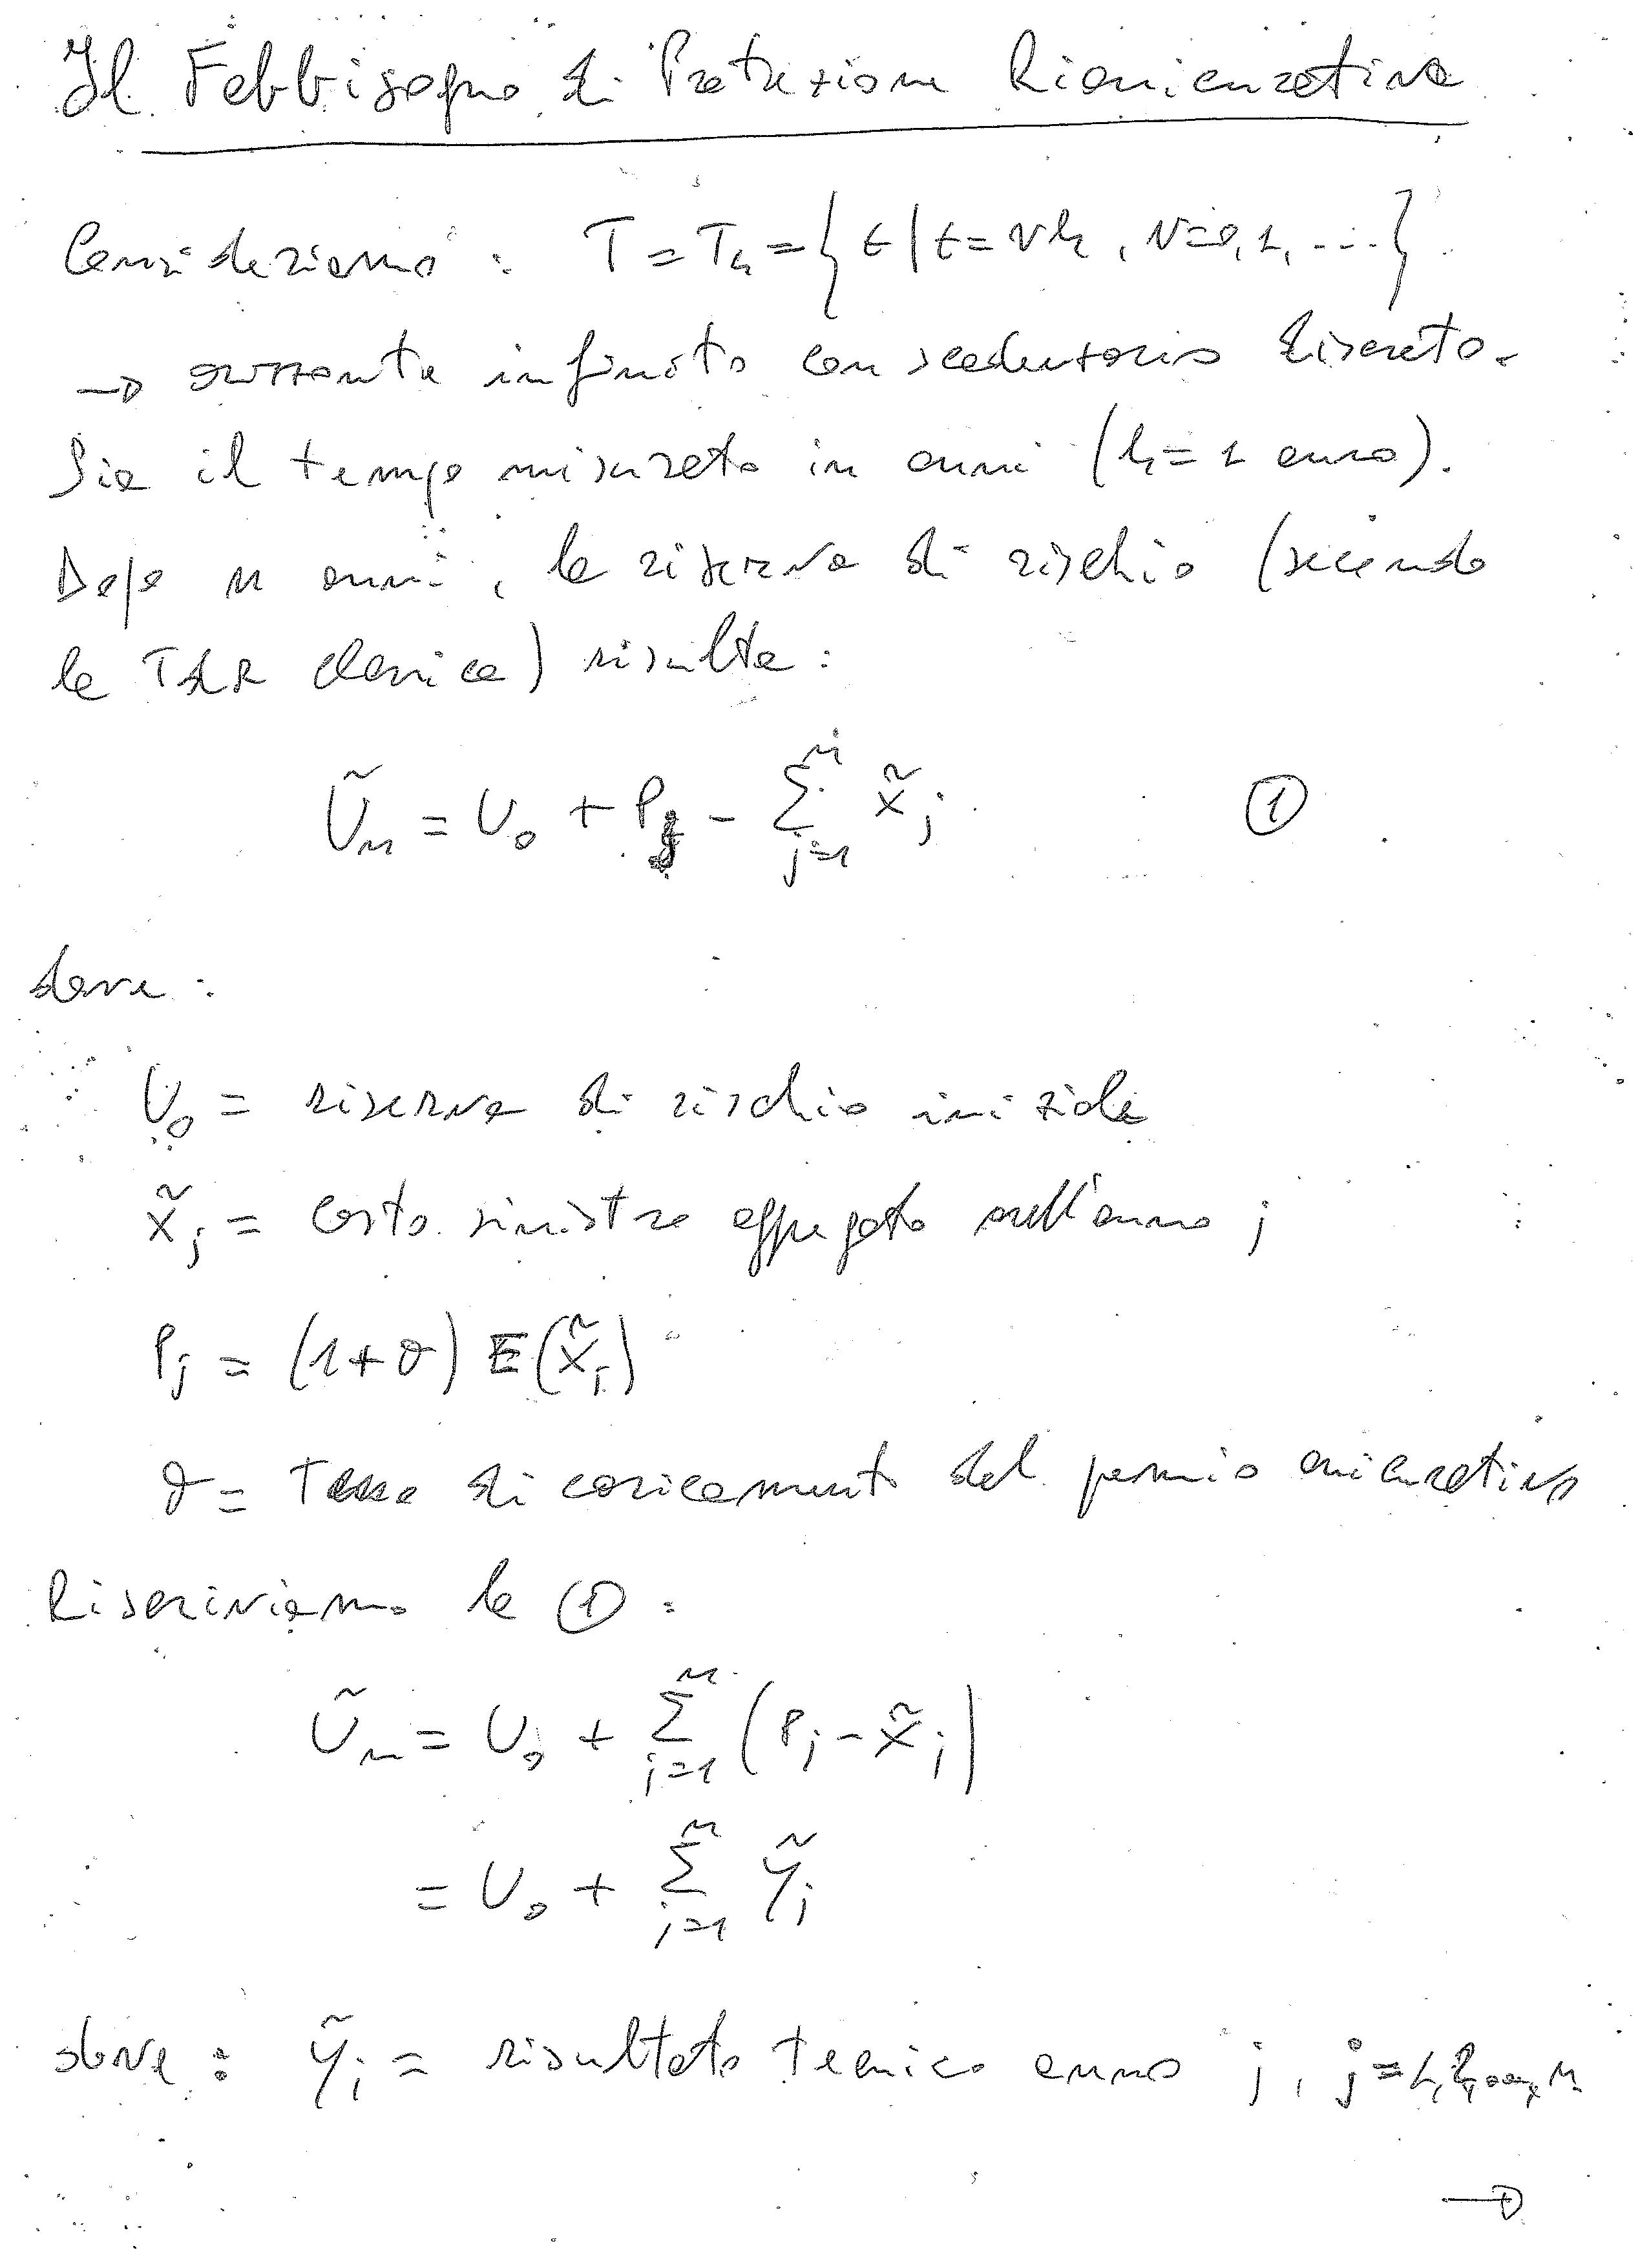 Il Fabbisogno di Protezione Riassicurativa
Consideriamo : T = T_h = { t | t = νh , ν = 0, 1, ... }
→ orizzonte infinito con scadenzario discreto.
Sia il tempo misurato in anni (h = 1 anno).
Dopo n anni , la riserva di rischio (secondo
la TdR classica) risulta :
Ũ_n = U_0 + P_j - Σ_{j=1}^{n} X̃_j ①
dove :
U_0 = riserva di rischio iniziale
X̃_j = costo sinistri aggregato nell'anno j
P_j = (1+θ) E(X̃_j)
θ = Tasso di caricamento del premio assicurativo
Riscriviamo la ① :
Ũ_n = U_0 + Σ_{j=1}^{n} (P_j - X̃_j)
= U_0 + Σ_{j=1}^{n} Ỹ_j
dove : Ỹ_j = risultato tecnico anno j , j = 1, 2, ..., n
→